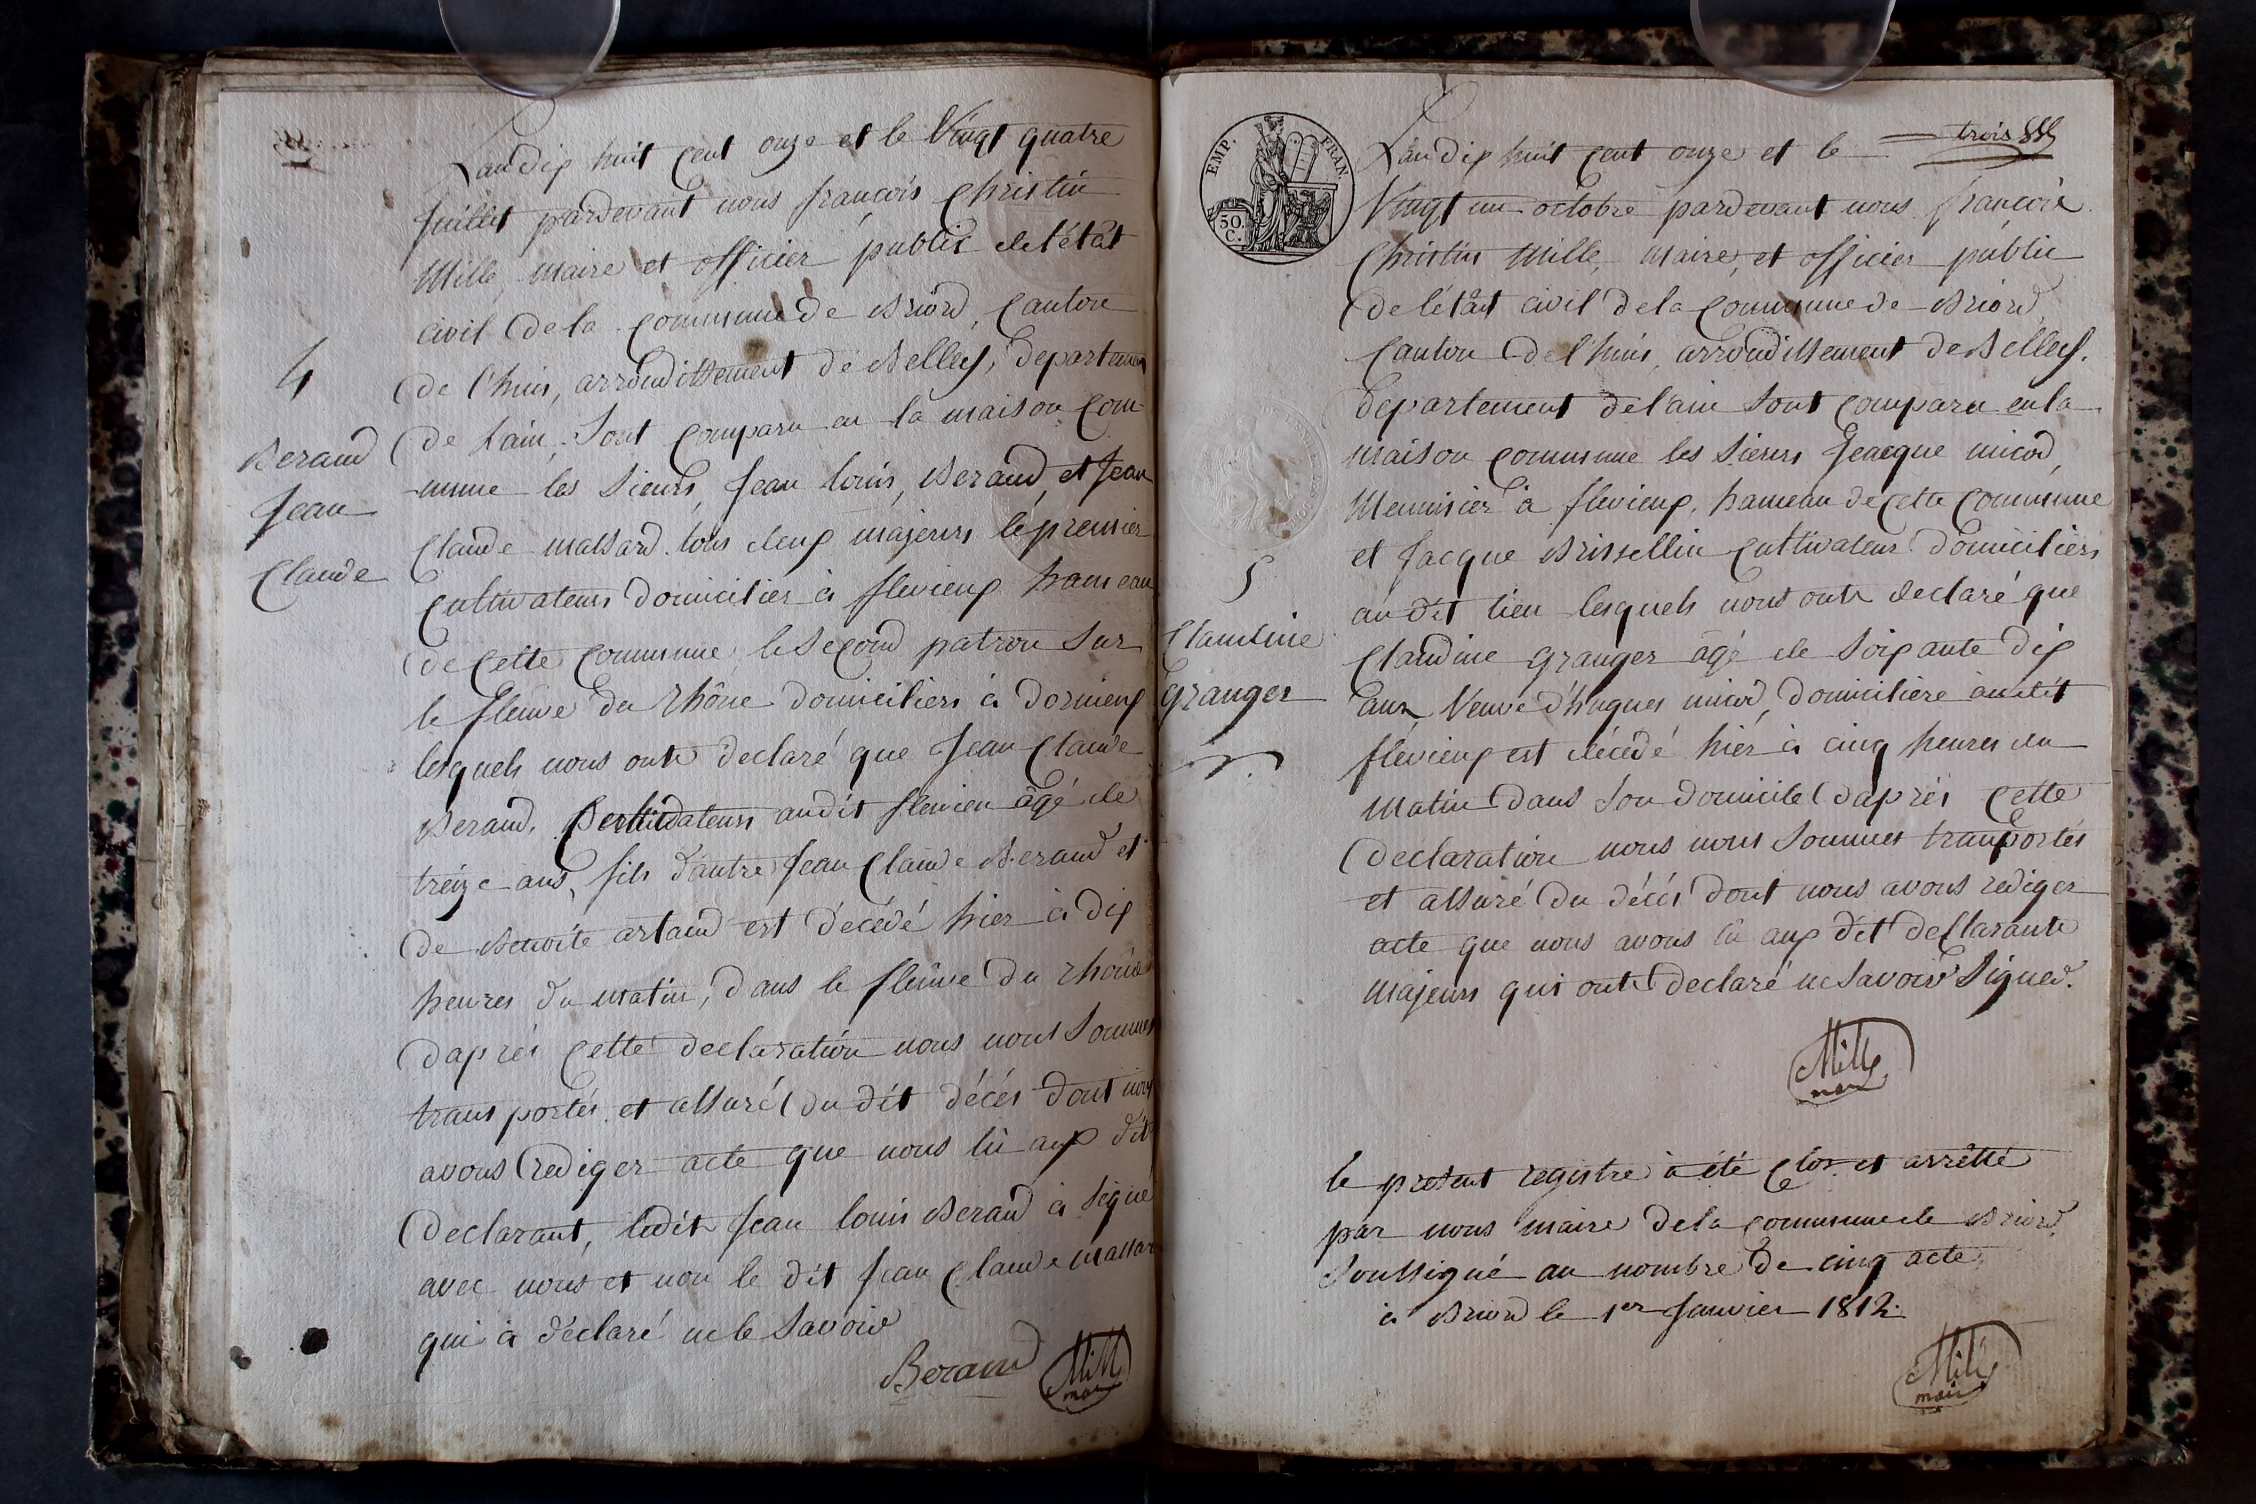 L'an dix huit cent onze et le Vingt quatre
Juillet pardevant nous françois Christin
Mille, maire et officier public de l'état
civil de la commune de Briord, Canton
de l'huis, arrondissement de Belley, departemen
de l'ain, Sont comparu en la maison com-
-mune les Sieurs, Jean louis, Beraud, et Jean
Claude massard tous deux majeurs le premier
Cultivateurs domicilier à flevieux hameau
de Cette Commune le Second patron Sur
le fleuve du rhône domiciliers à dornieux
lesquels nous ont declaré que Jean Claude
Beraud, Cultivateurs audit flevieu âgé de
treize ans, fils d'autre Jean Claude Beraud et
de Benoite artaud est décédé hier à dix
heures du matin, dans le fleuve du rhône
d'après Cette declaration nous nous Sommes
transportés et assuré du dit décés dont nous
avons rediger acte que nous lu aux dit
declarant, ledit Jean louis Beraud à Signé
avec nous et non le dit Jean Claude massar
qui à déclaré ne le Savoir
Beraud Mille
maire
4
Beraud
Jean
Claude
trois
L'an dix huit cent onze et le
Vingt un octobre pardevant nous françois
Christin Mille, maire, et officier public
de l'état civil de la Commune de Briord
Canton de l'huis, arrondissement de Belley.
departement de l'ain Sont comparu en la
maison commune les Sieurs Jeacque micod,
Menuisier à flevieux, hameau de cette commune
et Jacque Brissellin Cultivateur domiciliers
au dit lieu lesquels nous ont declaré que
Claudine granger âgé de Soixante dix
ans, Veuve d'hugues micod, domicilière audit
flevieux est décédé hier à cinq heures du
matin dans Son domicile d'après Cette
declaration nous nous Sommes transportés
et assuré du décés dont nous avons rediger
acte que nous avons lu aux dit declarants
majeurs qui ont declaré ne Savoir Signer.
Mille
maire
EMP. FRAN.
50.
C.
5
Claudine
granger
le présent registre à été Clos et arrêtté
par nous maire de la commune de Briord
Soussigné au nombre de cinq acte,
à Briord le 1er Janvier 1812.
Mille
maire